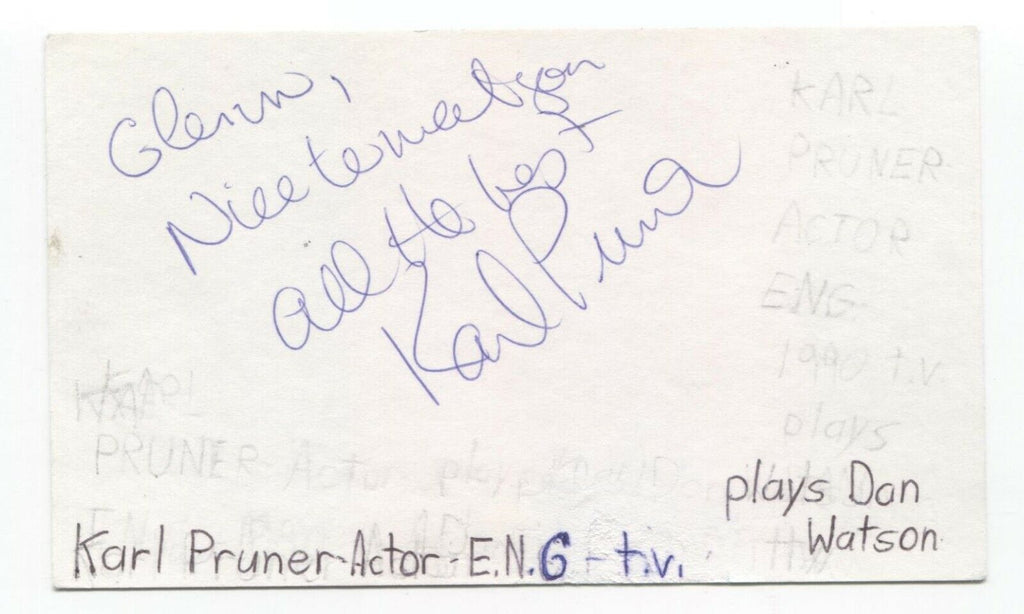 Glenn,
Nice to meet you
all the best
Karl Pruner
KARL
PRUNER
ACTOR
ENG
1990 t.v.
plays
KARL
PRUNER Actor plays
plays Dan
Watson
Karl Pruner-Actor-E.N.G-t.v.